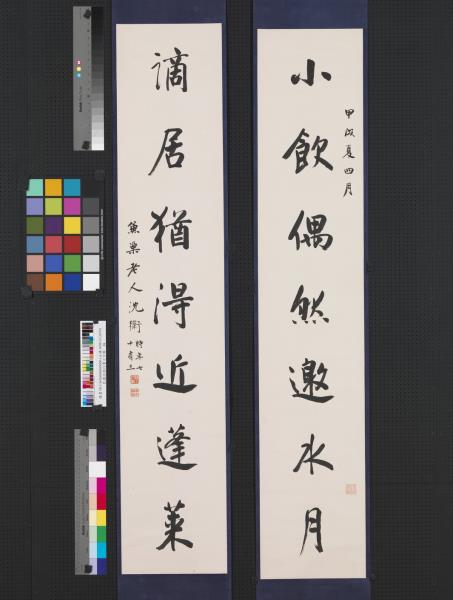 甲戌夏四月
小飲偶然邀水月
謫居猶得近蓬萊
兼巢老人沈衛時年七
十有三